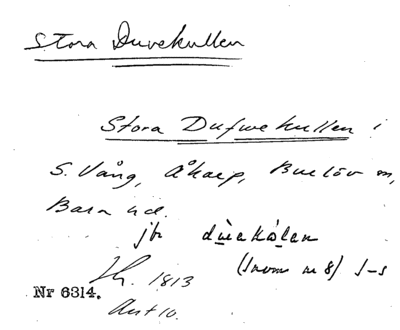 Stora Duvekullen
Stora Dufwekullen i
S. Vång, Åkarp, Burlöv m,
Bara hd.
jfr dùekòlen
(Inom nr 8) J-s
1813
Nr 6314.
Ant 10.